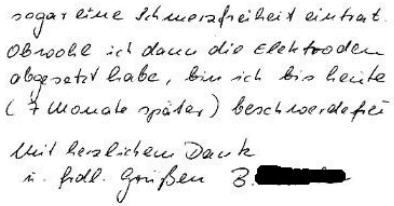 sogar eine Schmerzfreiheit eintrat.
Obwohl ich dann die Elektroden
abgesetzt habe, bin ich bis heute
(7 Monate später) beschwerdefrei
Mit herzlichem Dank
u. frdl. Grüßen B.